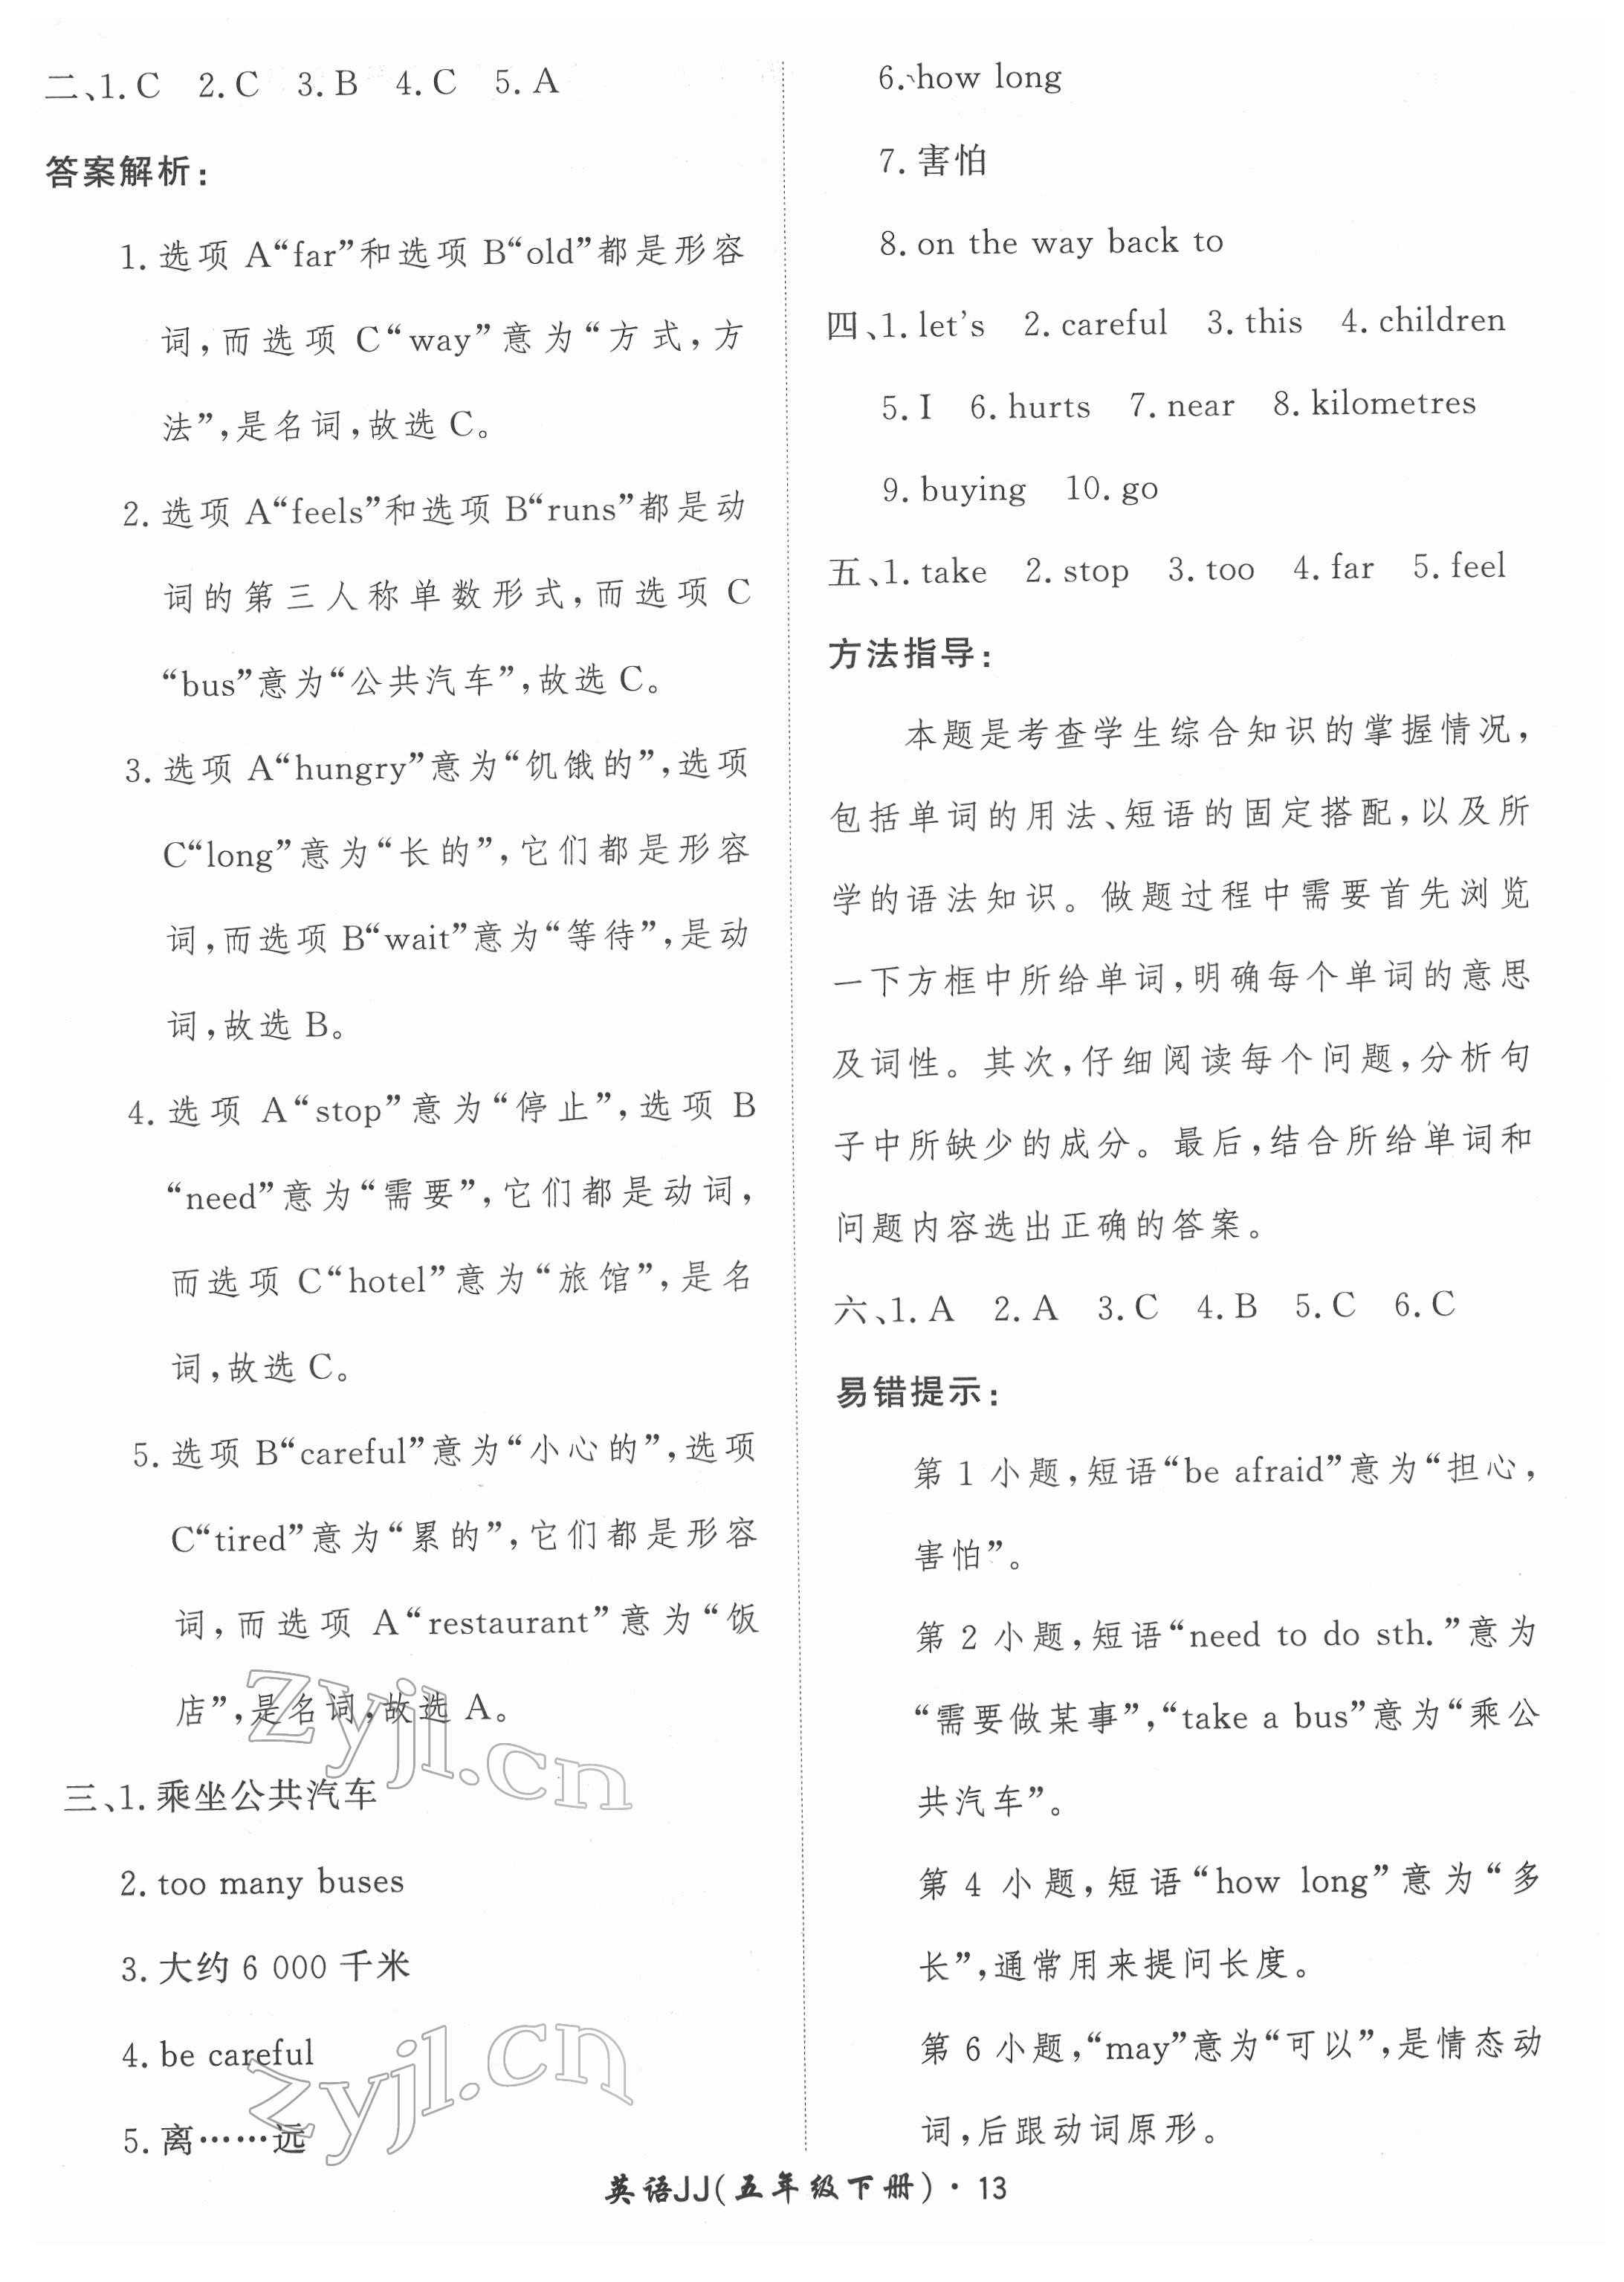 二、1. C 2. C 3. B 4. C 5. A
答案解析：
1. 选项 A“far”和选项 B“old”都是形容
词，而选项 C“way”意为“方式，方
法”，是名词，故选 C。
2. 选项 A“feels”和选项 B“runs”都是动
词的第三人称单数形式，而选项 C
“bus”意为“公共汽车”，故选 C。
3. 选项 A“hungry”意为“饥饿的”，选项
C“long”意为“长的”，它们都是形容
词，而选项 B“wait”意为“等待”，是动
词，故选 B。
4. 选项 A“stop”意为“停止”，选项 B
“need”意为“需要”，它们都是动词，
而选项 C“hotel”意为“旅馆”，是名
词，故选 C。
5. 选项 B“careful”意为“小心的”，选项
C“tired”意为“累的”，它们都是形容
词，而选项 A“restaurant”意为“饭
店”，是名词，故选 A。
三、1. 乘坐公共汽车
2. too many buses
3. 大约 6 000 千米
4. be careful
5. 离……远
6. how long
7. 害怕
8. on the way back to
四、1. let's 2. careful 3. this 4. children
5. I 6. hurts 7. near 8. kilometres
9. buying 10. go
五、1. take 2. stop 3. too 4. far 5. feel
方法指导：
本题是考查学生综合知识的掌握情况，
包括单词的用法、短语的固定搭配，以及所
学的语法知识。做题过程中需要首先浏览
一下方框中所给单词，明确每个单词的意思
及词性。其次，仔细阅读每个问题，分析句
子中所缺少的成分。最后，结合所给单词和
问题内容选出正确的答案。
六、1. A 2. A 3. C 4. B 5. C 6. C
易错提示：
第 1 小题，短语“be afraid”意为“担心，
害怕”。
第 2 小题，短语“need to do sth.”意为
“需要做某事”，“take a bus”意为“乘公
共汽车”。
第 4 小题，短语“how long”意为“多
长”，通常用来提问长度。
第 6 小题，“may”意为“可以”，是情态动
词，后跟动词原形。
英语JJ(五年级下册)·13
zyjl.cn
zyjl.cn